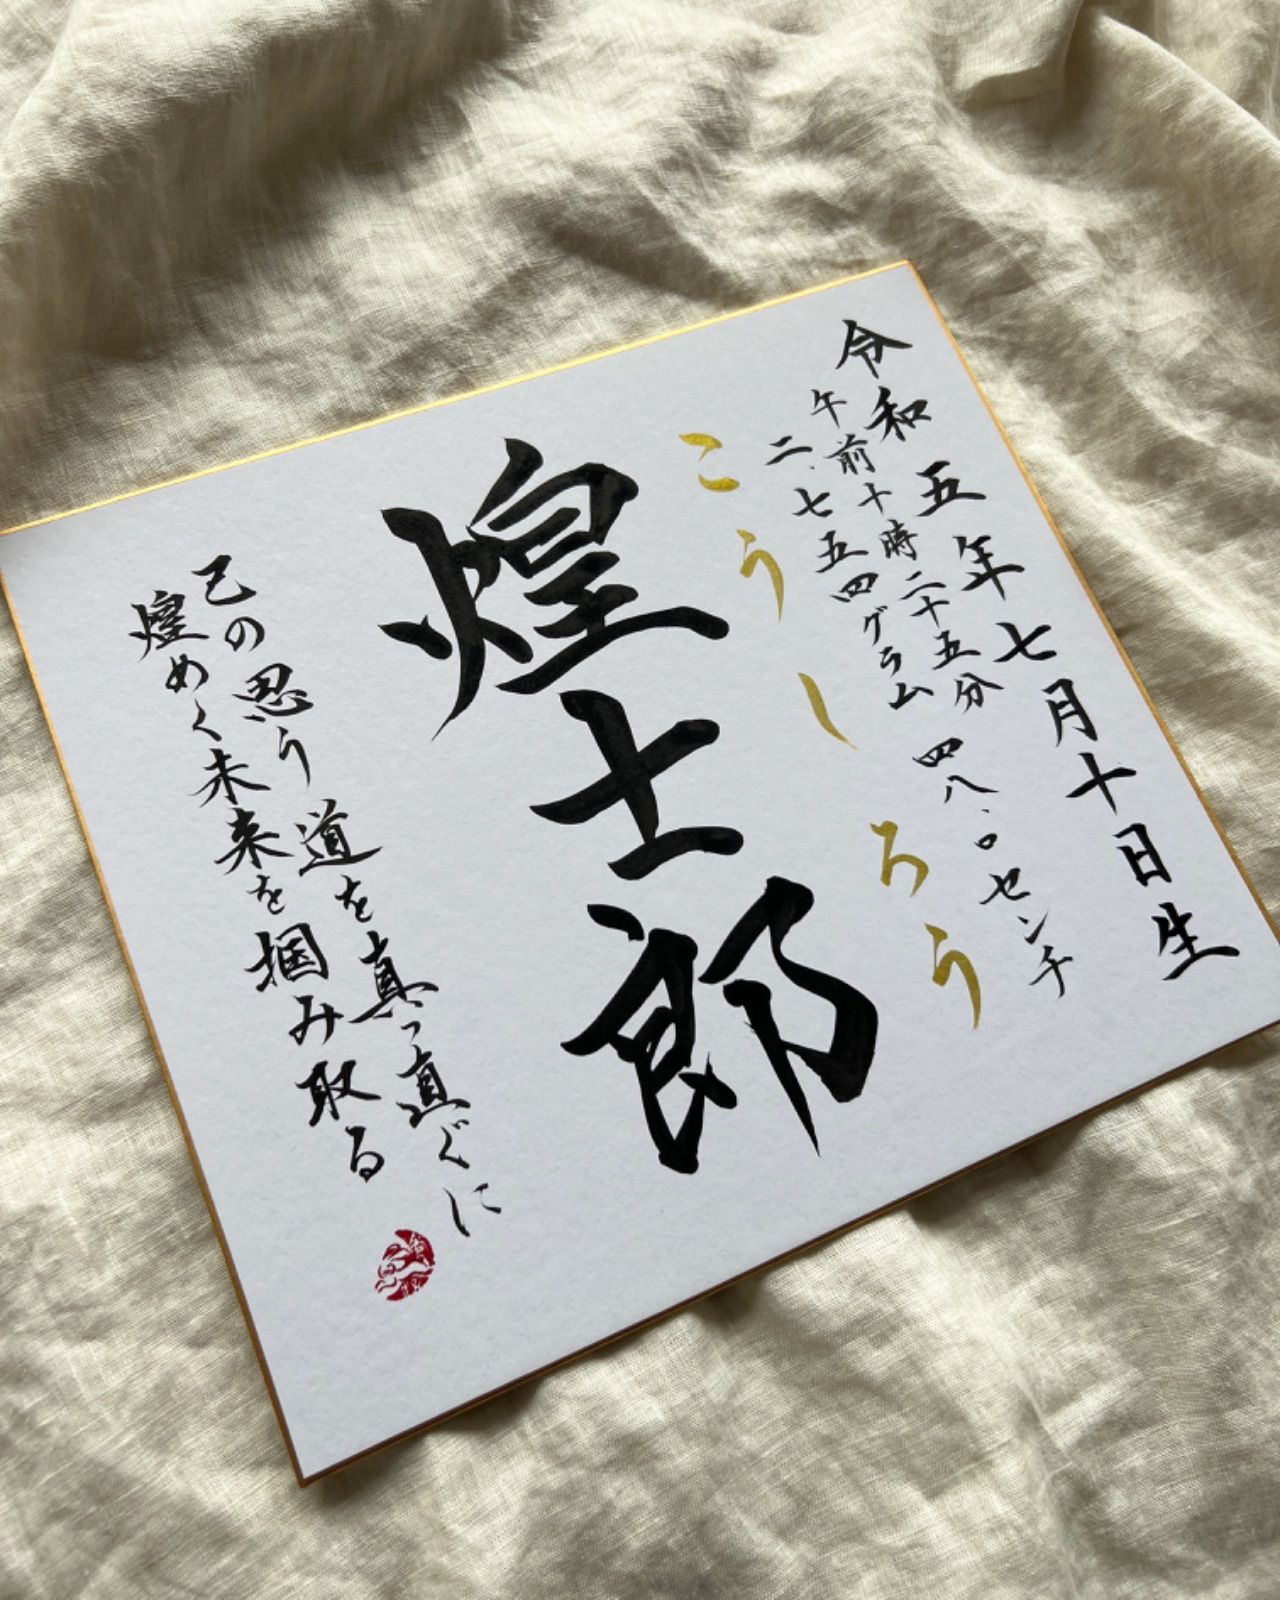 令和五年七月十日生
午前十時二十五分
二.七五四グラム 四八.〇センチ
こうしろう
煌士郎
己の思う道を真っ直ぐに
煌めく未来を掴み取る